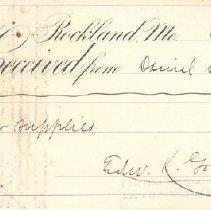 Rockland, Me.
Received from Daniel
supplies
Edw. K. Go